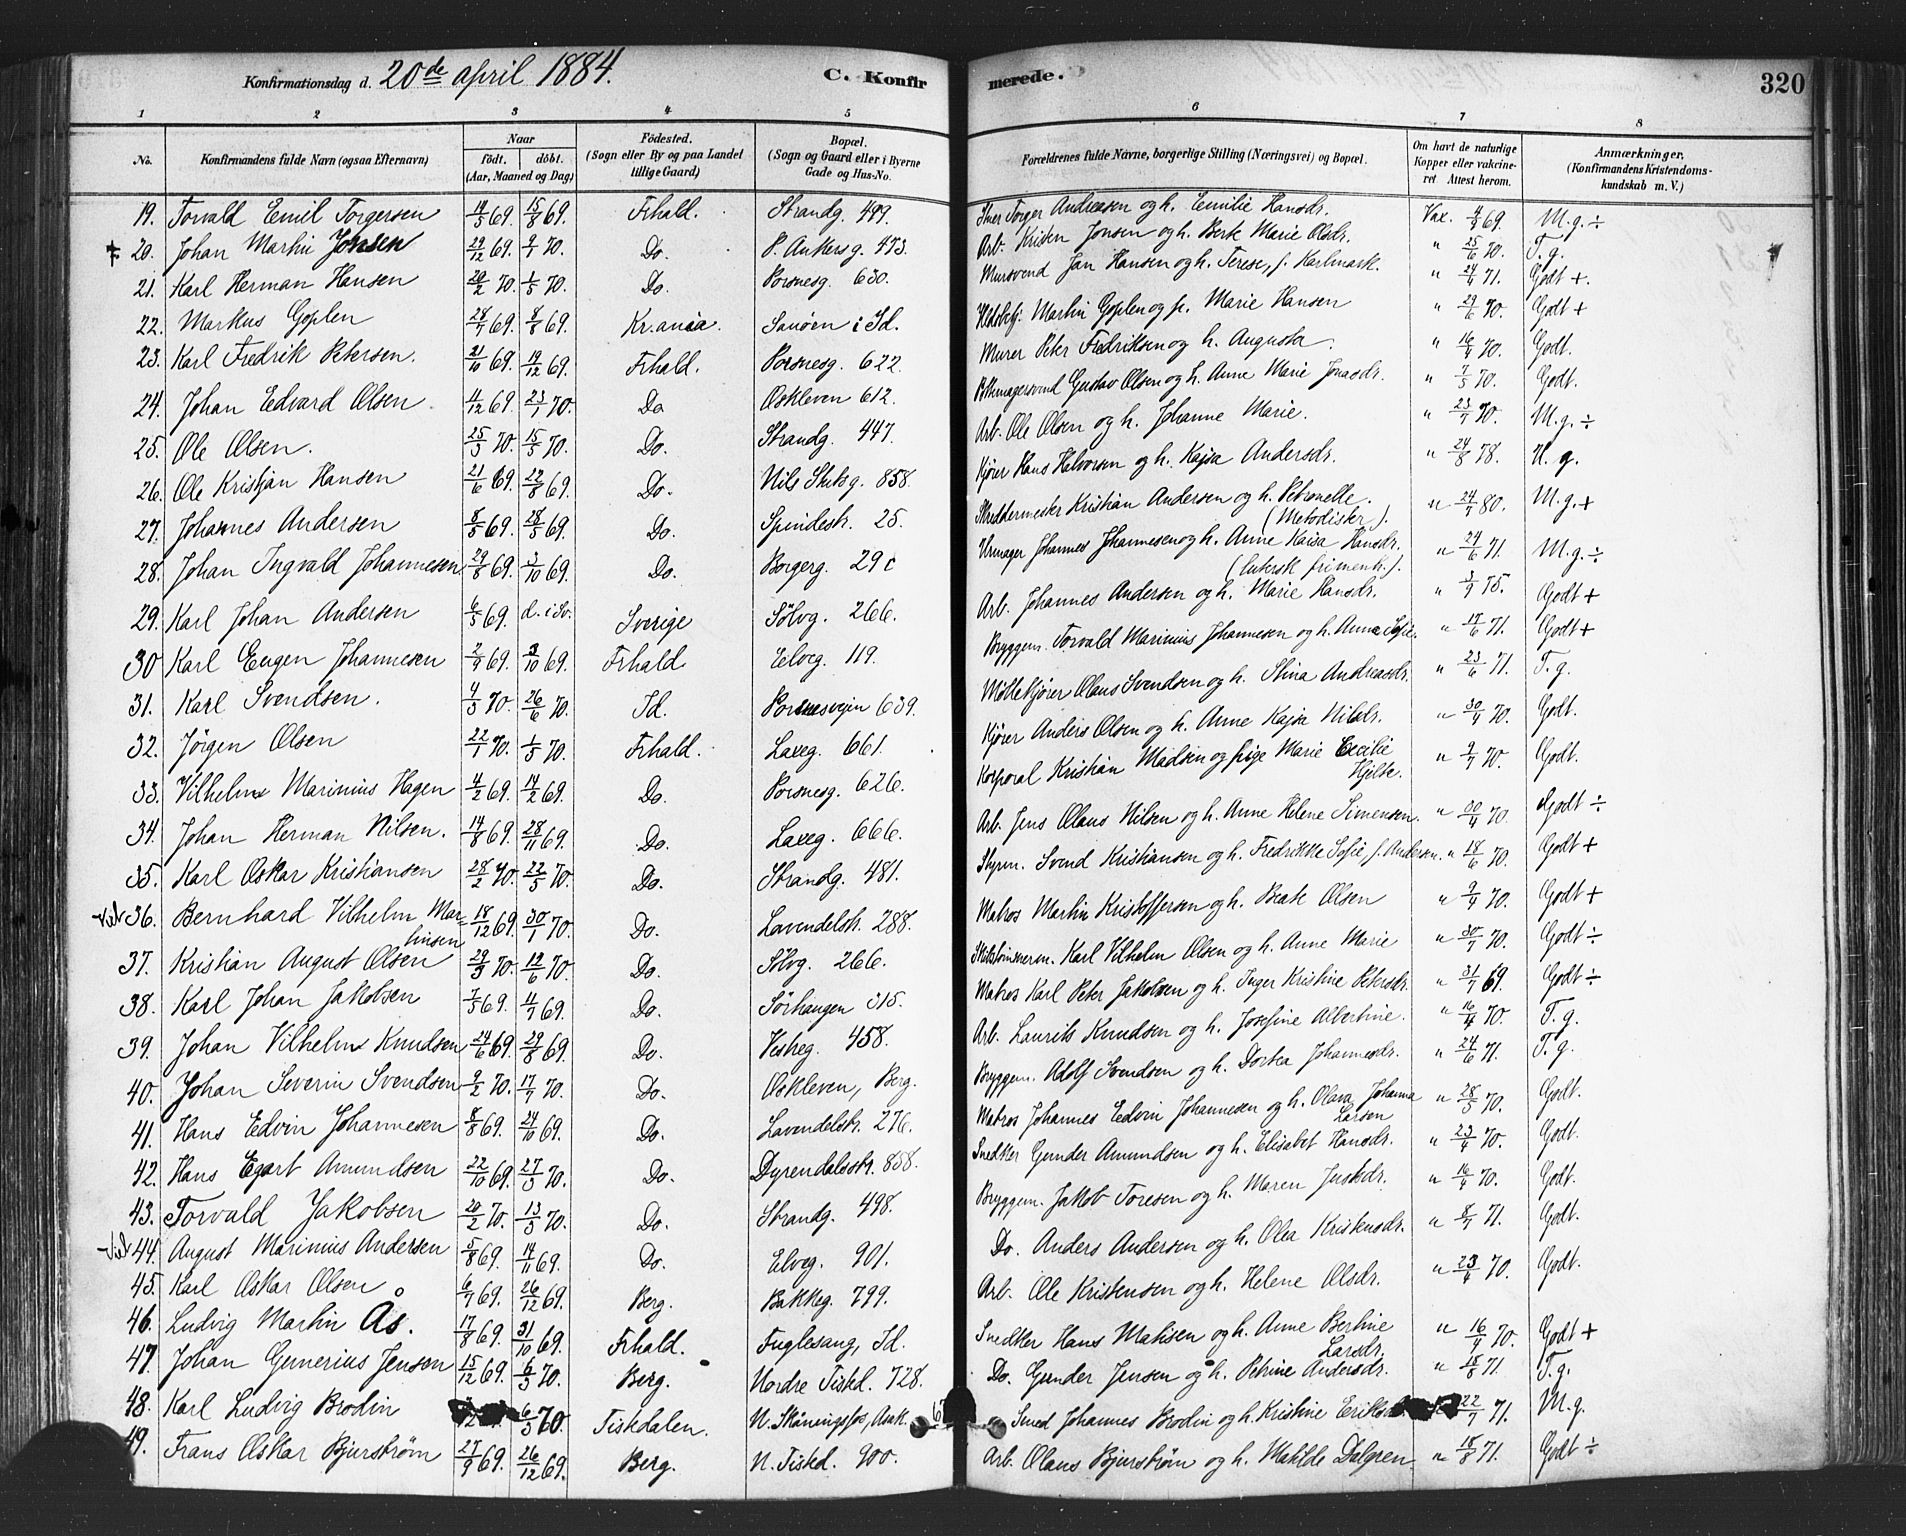 Konfirmationsdag d. 20de april 1884. C. Konfirmerede. 320
1 2 3 4 5 6 7 8
No. Konfirmandens fulde Navn (ogsaa Efternavn) Naar født. døbt. (Aar, Maaned og Dag) Fødested. (Sogn eller By og paa Landet tillige Gaard) Bopæl. (Sogn og Gaard eller i Byerne Gade og Hus-No. Forældrenes fulde Navne, borgerlige Stilling (Næringsvei) og Bopæl. Om havt de naturlige Kopper eller vakcineret Attest herom. Anmærkninger, (Konfirmandens Kristendomskundskab m. V.)
19. Torvald Emil Torgersen 14/5 69. 15/8 69. Frhald. Strandg. 499. Torger Andreasen og h. Emilie Hansdr. Vax. 4/9 69. M.g. ÷
20. Johan Martin Jonsen 29/12 69. 9/1 70. Do. P. Ankersg. 473. Arb. Kristen Jonsen og h. Berte Marie Olsdr. " 25/6 70. T.g.
21. Karl Herman Hansen 20/2 70. 1/5 70. Do. Porsnesg. 630. Mursvend Jan Hansen og h. Terese, f. Karlmark. " 24/6 71. Godt +.
22. Markus Goplen 28/7 69. 8/8 69. Kr.ania. Sanøen i Id. Martin Goplen og p. Marie Hansen " 29/6 70. Godt +
23. Karl Fredrik Petersen. 21/10 69. 19/12 69. Frhald. Porsnesg. 622. Murer Peter Fredriksen og h. Augusta. " 16/4 70. Godt.
24. Johan Edvard Olsen 4/12 69. 23/1 70. Do Oskleven 612. Pottemagersvend Gustav Olsen og h. Anne Marie Jonasdr. " 7/5 70. Godt.
25. Ole Olsen. 25/3 70. 15/5 70. Do. Strandg. 447. Arb. Ole Olsen og h. Johanne Marie. " 23/7 70. M.g. ÷
26. Ole Kristjan Hansen 21/6 69. 22/8 69. Do. Nils Stubsg. 858. Kjører Hans Halvorsen og h. Kajsa Andersdr. " 24/8 78. N. g.
27. Johannes Andersen 8/5 69. 28/5 69. Do. Spindestr. 25. Skreddermester Kristian Andersen og h. Petronelle. (Metodister). " 24/7 80. M.g. +
28. Johan Ingvald Johannesen 29/8 69. 3/10 69. Do. Borgerg. 29 c Urmager Johannes Johannesen og h. Anne Kaisa Hansdr. (lutersk frimenh.). " 24/6 71. M.g. ÷
29. Karl Johan Andersen 6/5 69. d. i Sv. Sverige Sölvg. 266. Arb. Johannes Andersen og h. Marie Hansdr. " 3/9 75. Godt +
30 Karl Eugen Johannesen 2/9 69. 3/10 69. Frhald Elveg. 119. Bryggem. Torvald Marinius Johannesen og h. Anna Sofie. " 17/6 71. Godt +
31. Karl Svendsen. 4/5 70. 26/6 70. Id. Porsnesvejen 639. Møllekjører Olaus Svendsen og h. Stina Andreasdr. " 23/6 71. T. g.
32. Jörgen Olsen 22/1 70. 1/5 70. Frhald. Laxeg. 661. Kjører Anders Olsen og h. Anne Kajsa Nilsdr. " 30/4 70. Godt.
33. Vilhelm Marinius Hagen 4/2 69. 14/2 69. Do. Porsnesg. 626. Korporal Kristian Madsen og pige Marie Cecilie Hjelte. " 9/7 70. Godt.
34. Johan Herman Nilsen. 14/8 69. 28/11 69. Do. Laxeg. 666. Arb. Jens Olaus Nilsen og h. Anne Helene Simensen. " 30/4 70. Godt ÷
35. Karl Oskar Kristiansen 28/2 70. 22/5 70. Do. Strandg. 481. Styrm. Svend Kristiansen og h. Fredrikke Sofie f. Andersen. " 18/6 70. Godt +
36. Bernhard Vilhelm Martinsen 18/12 69. 30/1 70. Do. Lavendelstr. 288. Matros Martin Kristoffersen og h. Beate Olsen " 9/4 70. Godt +
37. Kristian August Olsen 29/3 70. 12/6 70. Do. Sölvg. 266. Karl Vilhelm Olsen og h. Anne Marie " 30/7 70. Godt ÷
38. Karl Johan Jakobsen 7/5 69. 4/7 69. Do. Sörhaugen 315. Matros Karl Peter Jakobsen og h. Inger Kristine Petersdr. " 31/7 69. Godt ÷
39. Johan Vilhelm Knudsen 24/6 69. 29/8 69. Do. Vestreg. 458. Arb. Laurits Knudsen og h. Josefine Albertine. " 16/4 70. T. g.
40. Johan Severin Svendsen 9/2 70. 17/7 70. Do. Oskleven, Berg. Bryggem. Adolf Svendsen og h. Dortea Johannesdr. " 24/6 71. T. g.
41. Hans Edvin Johannesen 8/8 69. 24/10 69. Do. Lavendelstr. 276. Matros Johannes Edvin Johannesen og h. Olava Johanna Larsen " 28/5 70. Godt.
42. Hans Egart Amundsen 22/10 69. 27/3 70. Do. Dyrendalsstr. 858. Snedker Gunder Amundsen og h. Elisabet Hansdr. " 23/4 70. Godt.
43. Torvald Jakobsen 20/2 70. 13/3 70. Do. Strandg. 498. Bryggem. Jakob Toresen og h. Maren Justsdr. " 16/4 70. Godt.
44. August Marinius Andersen 5/8 69. 14/11 69. Do. Elveg. 901. Do. Anders Andersen og h. Olea Kristensdr. " 8/7 71. Godt.
45. Karl Oskar Olsen 6/7 69. 26/12 69. Berg. Bakkeg. 799. Arb. Ole Kristensen og h. Helene Olsdr. " 23/4 70. Godt.
46. Ludvig Martin Ås. 17/8 69. 31/10 69. Frhald. Fuglesang, Id. Snedker Hans Matisen og h. Anne Bertine Larsdr. " 16/4 70. Godt +
47. Johan Gunerius Jensen 15/12 69. 6/3 70. Berg. Nordre Tistd. 728. Do. Gunder Jensen og h. Petrine Andersdr. " 18/8 71. T.g.
48. Karl Ludvig Brodin 6/3 70. Tistedalen. N. Skåningsfos, Asak. Smed Johannes Brodin og h. Kristine 22/7 71. M.g.
49. Frans Oskar Bjurstrøm 27/9 69. 26/12 69. Berg. N. Tistd. 900. Arb. Olaus Bjurstrøm og h. Matilde Dalgren " 18/8 71. Godt ÷